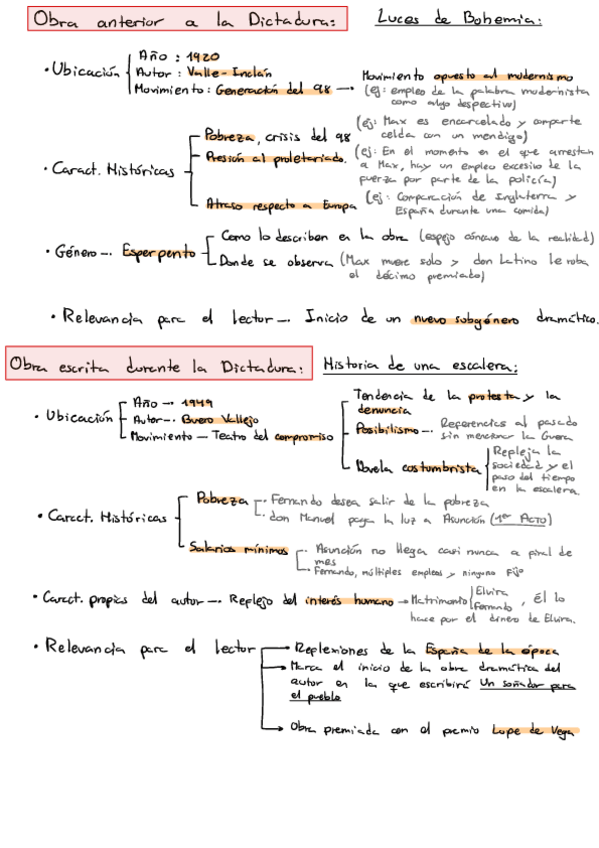 Obra anterior a la Dictadura: Luces de Bohemia:
• Ubicación
Año : 1920
Autor : Valle-Inclán
Movimiento : Generación del 98 → Movimiento opuesto al modernismo
(ej: empleo de la palabra modernista
como algo despectivo)
• Caract. Históricas
Pobreza, crisis del 98 (ej: Max es encarcelado y comparte
celda con un mendigo)
Presión al proletariado. (ej: En el momento en el que arrestan
a Max, hay un empleo excesivo de la
fuerza por parte de la policía)
Atraso respecto a Europa (ej: Comparación de Inglaterra y
España durante una comida)
• Género —. Esperpento
Como lo describen en la obra (espejo cóncavo de la realidad)
Donde se observa (Max muere solo y don Latino le roba
el décimo premiado)
• Relevancia para el lector —. Inicio de un nuevo subgénero dramático.
Obra escrita durante la Dictadura: Historia de una escalera:
• Ubicación
Año → 1949
Autor —. Buero Vallejo
Movimiento — Teatro del compromiso
Tendencia de la protesta y la
denuncia
Posibilismo —. Referencias al pasado
sin mencionar la Guerra
Novela costumbrista
Refleja la
sociedad y el
paso del tiempo
en la escalera.
• Caract. Históricas
Pobreza
Fernando desea salir de la pobreza
don Manuel paga la luz a Asunción (1er ACTO)
Salarios mínimos
Asunción no llega casi nunca a final de
mes
Fernando, múltiples empleos y ninguno fijo
• Caract. propias del autor —. Reflejo del interés humano → Matrimonio Elvira
Fernando, él lo
hace por el dinero de Elvira.
• Relevancia para el lector
Reflexiones de la España de la época
Marca el inicio de la obra dramática del
autor en la que escribirá Un soñador para
el pueblo
Obra premiada con el premio Lope de Vega